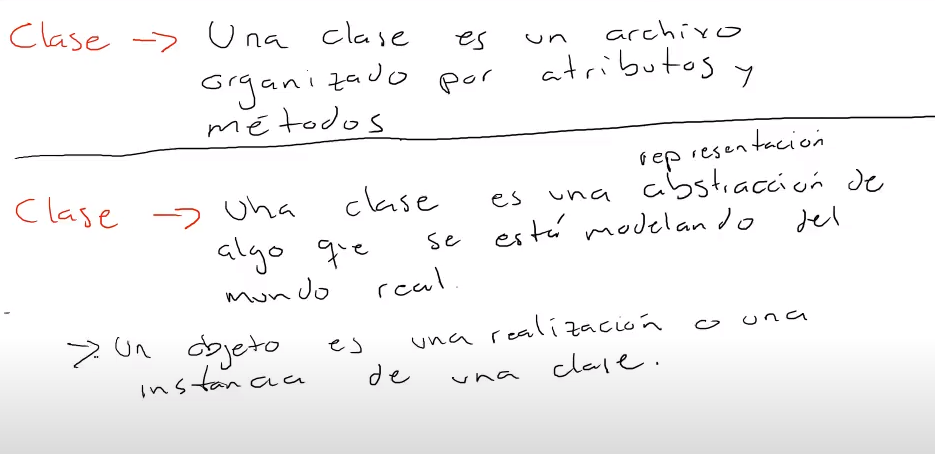 Clase -> Una clase es un archivo
organizado por atributos y
métodos
representación
Clase -> Una clase es una abstracción de
algo que se está modelando del
mundo real.
-> Un objeto es una realización o una
instancia de una clase.